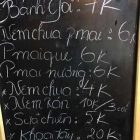 Bánh Gối: 7K
Nem chua P mai: 6K
P mai que: 6K
P mai nướng: 6K
Nem chua: 4K
Nem Rán: 10K
Su cà chiên: 5K
Khoai tây: 20K